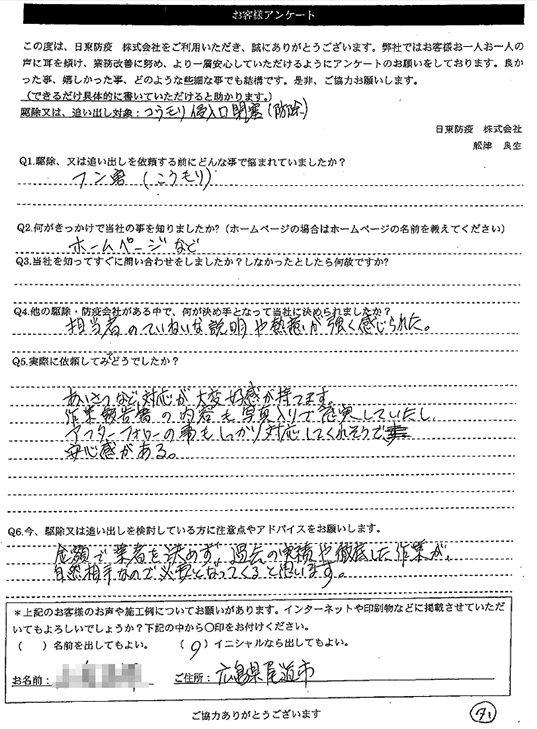 お客様アンケート
この度は、日東防疫 株式会社をご利用いただき、誠にありがとうございます。弊社ではお客様お一人お一人の
声に耳を傾け、業務改善に努め、より一層安心していただけるようにアンケートのお願いをしております。良か
った事、嬉しかった事、どのような些細な事でも結構です。是非、ご協力お願いします。
(できるだけ具体的に書いていただけると助かります。)
駆除又は、追い出し対象:コウモリ侵入口閉塞(防除)
日東防疫 株式会社
舩津 良生
Q1.駆除、又は追い出しを依頼する前にどんな事で悩まれていましたか?
フン害(こうもり)
Q2.何がきっかけで当社の事を知りましたか?(ホームページの場合はホームページの名前を教えてください)
ホームページなど
Q3.当社を知ってすぐに問い合わせをしましたか?しなかったとしたら何故ですか?
Q4.他の駆除・防疫会社がある中で、何が決め手となって当社に決められましたか?
担当者のていねいな説明や熱意が強く感じられた。
Q5.実際に依頼してみてどうでしたか?
あいさつなど対応が大変好感が持てます。
作業報告書の内容も写真入りで充実していたし、
アフターフォローの事もしっかり対応してくれそうで
安心感がある。
Q6.今、駆除又は追い出しを検討している方に注意点やアドバイスをお願いします。
金額で業者を決めず、過去の実績や徹底した作業が、
自然相手なので必要となってくると思います。
*上記のお客様のお声や施工例についてお願いがあります。インターネットや印刷物などに掲載させていただ
いてもよろしいでしょうか?下記の中から〇印をお付けください。
( )名前を出してもよい。 (○)イニシャルなら出してもよい。
お名前: ご住所:広島県尾道市
ご協力ありがとうございます